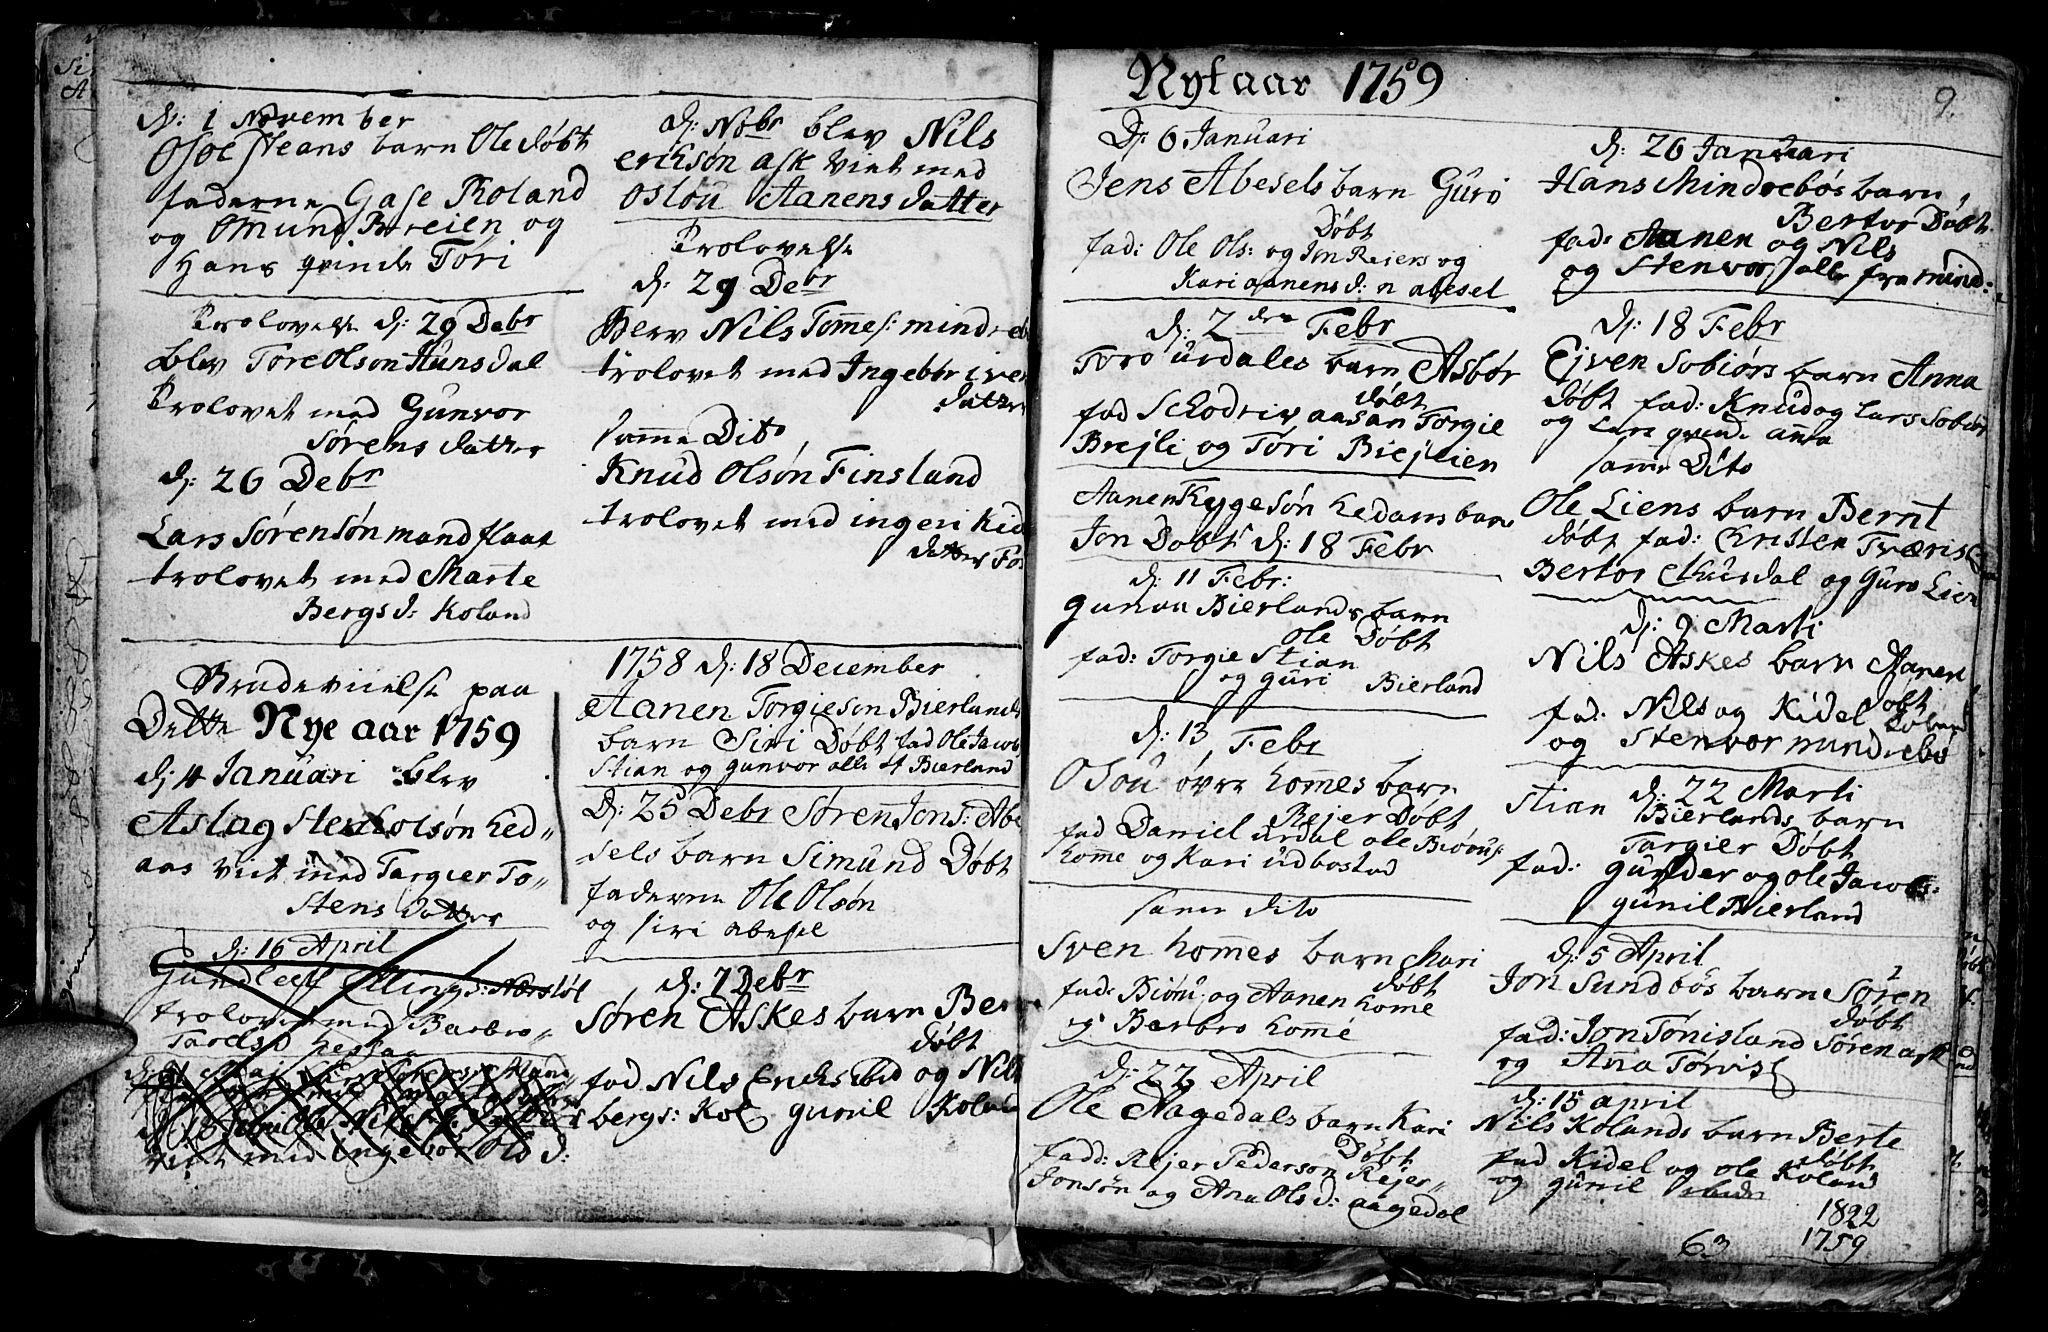 d: 1 November
Osoe Steans barn Ole døbt
faderne Gase Roland
og Ommund Breien og
Hans qvinde Tori
Trolovelse d: 29 Debr
blev Tore Olson Hunsdal
Trolovet med Gunvor
Sørens datter
d: 26 Debr
Lars Sørensøn mandflaat
trolovet med Marte
Bergs d: Koland
Brudeviielse paa
Dette Nye aar 1759
d: 4 Januari blev
Aslag Olsøn Hed=
aas viet med Targier To=
stens datter
d: 16 April
Gundleff Ellings:
trolovet med Barbro
viet med Ingebor Ols d:
d: Nobr blev Nils
Eriksøn Ask viet med
Oslou Aanens datter
Trolovelse
d: 29 Debr
blev Nils Tommes: mindreb
trolovet med Ingebor iver
datter
samme Dito
Knud Olsøn Finsland
trolovet med ingeri Kid
datter
1758 d: 18 December
Aanen Torgieson Bierlands
barn Siri Døbt fad Ole Jacob
Stian og gunvor alle 4 Bierland
D: 25 Debr Søren Jons: Abe
sels barn Simund Døbt
faderne Ole Olsøn
og siri abesel
d: 7 Debr
Søren Askes barn Ber
døbt
fad Nils Ericks og Nils
bergs: Kol gunil Koland
Nyt aar 1759
9.
D: 6 Januari
Jens Abesels barn Guro
Døbt
fad: Ole Ols: og Jon Reiers og
Kari aanens d: n abesel
d: 2 den Febr
Toro urdales barn Asbør
døbt
fad aasan Torgie
Brejli og Tori Biejlien
Aanen Tygesøn hedaas barn
Jon Døbt d: 18 Febr
d: 11 Febr:
gunon Bierlands barn
Ole Døbt
fad: Torgie Stian
og guri Bierland
d: 13 Febr
Osou øvre hommes barn
Rejer Døbt
fad Daniel urdal ole
homme og Kari udbostad
samme dito
Sven hommes barn Mari
døbt
fad: Biøru og Aanen home
og Berbro home
d: 22 April
Ole Aagedals barn Kari
Døbt
fadd: Rejer Pederson Rejer
Jonsøn og Ana Ols d: aagedal
d: 26 Januari
Hans Mindrebøs barn
Bertor Døbt
fad: Aanen og Nils
og Stenvor alle fra mind:
d: 18 Febr
Ejven Sobiørs barn Anna
døbt fad: Knud og Lars Sobiør
og Lars qvinde anna
samme Dito
Ole Liens barn Bernt
døbt fad: Christen
Bertor og Guro Lien
d: 9 Marti
Nils Askes barn Aanen
døbt
fad: Nils og Kidel Koland
og Stenvor mindrebø
d: 22 Marti
Stian Bierlands barn
Targier Døbt
fad: gunder og ole Jacobs:
gunil Bierland
d: 5 April
Jon Sundbøs barn Søren
døbt
fad: Jon Tønisland Søren ask
og Ana
d: 15 april
Nils Kolands barn Berte
døbt
fad Kidel og ole Koland
og gunil
1822
1759
63